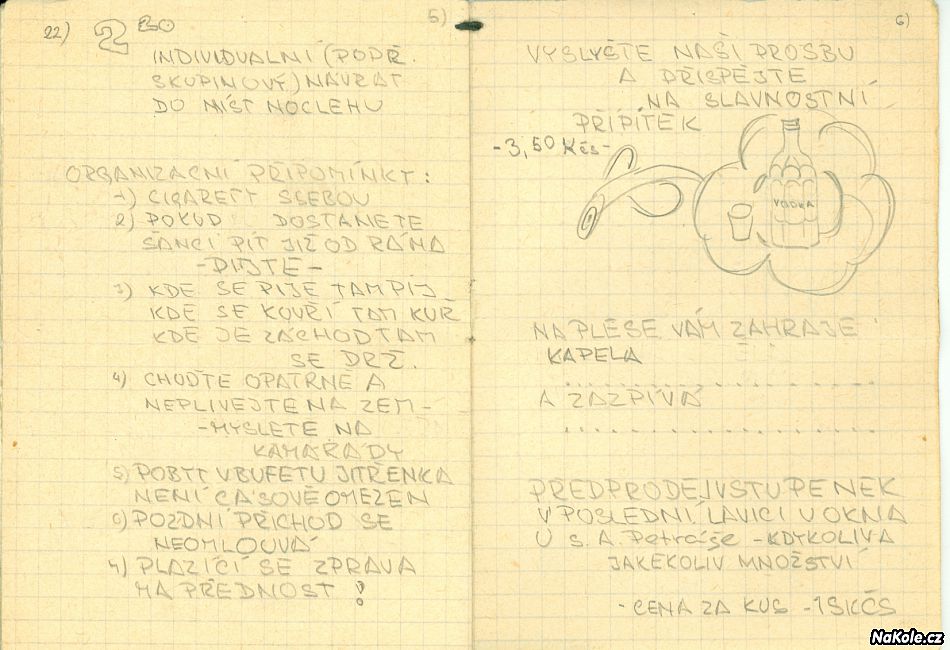 5)
22) 2 20
INDIVIDUALNÍ (POPŘ.
SKUPINOVÝ) NÁVRAT
DO MÍST NOCLEHU
ORGANIZAČNÍ PŘIPOMÍNKY:
1) CIGARETY SSEBOU
2) POKUD DOSTANETE
ŠANCI PÍT JIŽ OD RÁNA
- PIJTE -
3) KDE SE PIJE TAM PIJ
KDE SE KOUŘÍ TAM KUŘ
KDE JE ZÁCHOD TAM
SE DRŽ.
4) CHOĎTE OPATRNĚ A
NEPLIVEJTE NA ZEM -
- MYSLETE NA
KAMARÁDY
5) POBYT V BUFETU JITŘENKA
NENÍ ČASOVĚ OMEZEN
6) POZDNÍ PŘÍCHOD SE
NEOMLOUVÁ
4) PLAZÍCÍ SE ZPRAVA
MA PŘEDNOST !
6)
VYSLYŠTE NAŠÍ PROSBU
A PŘISPĚJTE
NA SLAVNOSTNÍ
PŘÍPITEK
- 3,50 Kčs -
VODKA
NA PLESE VÁM ZAHRAJE
KAPELA
....................
A ZAZPÍVÁ
....................
PŘEDPRODEJ VSTUPENEK
V POSLEDNÍ LAVICI U OKNA
U s. A. Petráše - KDYKOLIVA
JAKÉKOLIV MNOŽSTVÍ
- CENA ZA KUS - 15KČS
NaKole.cz